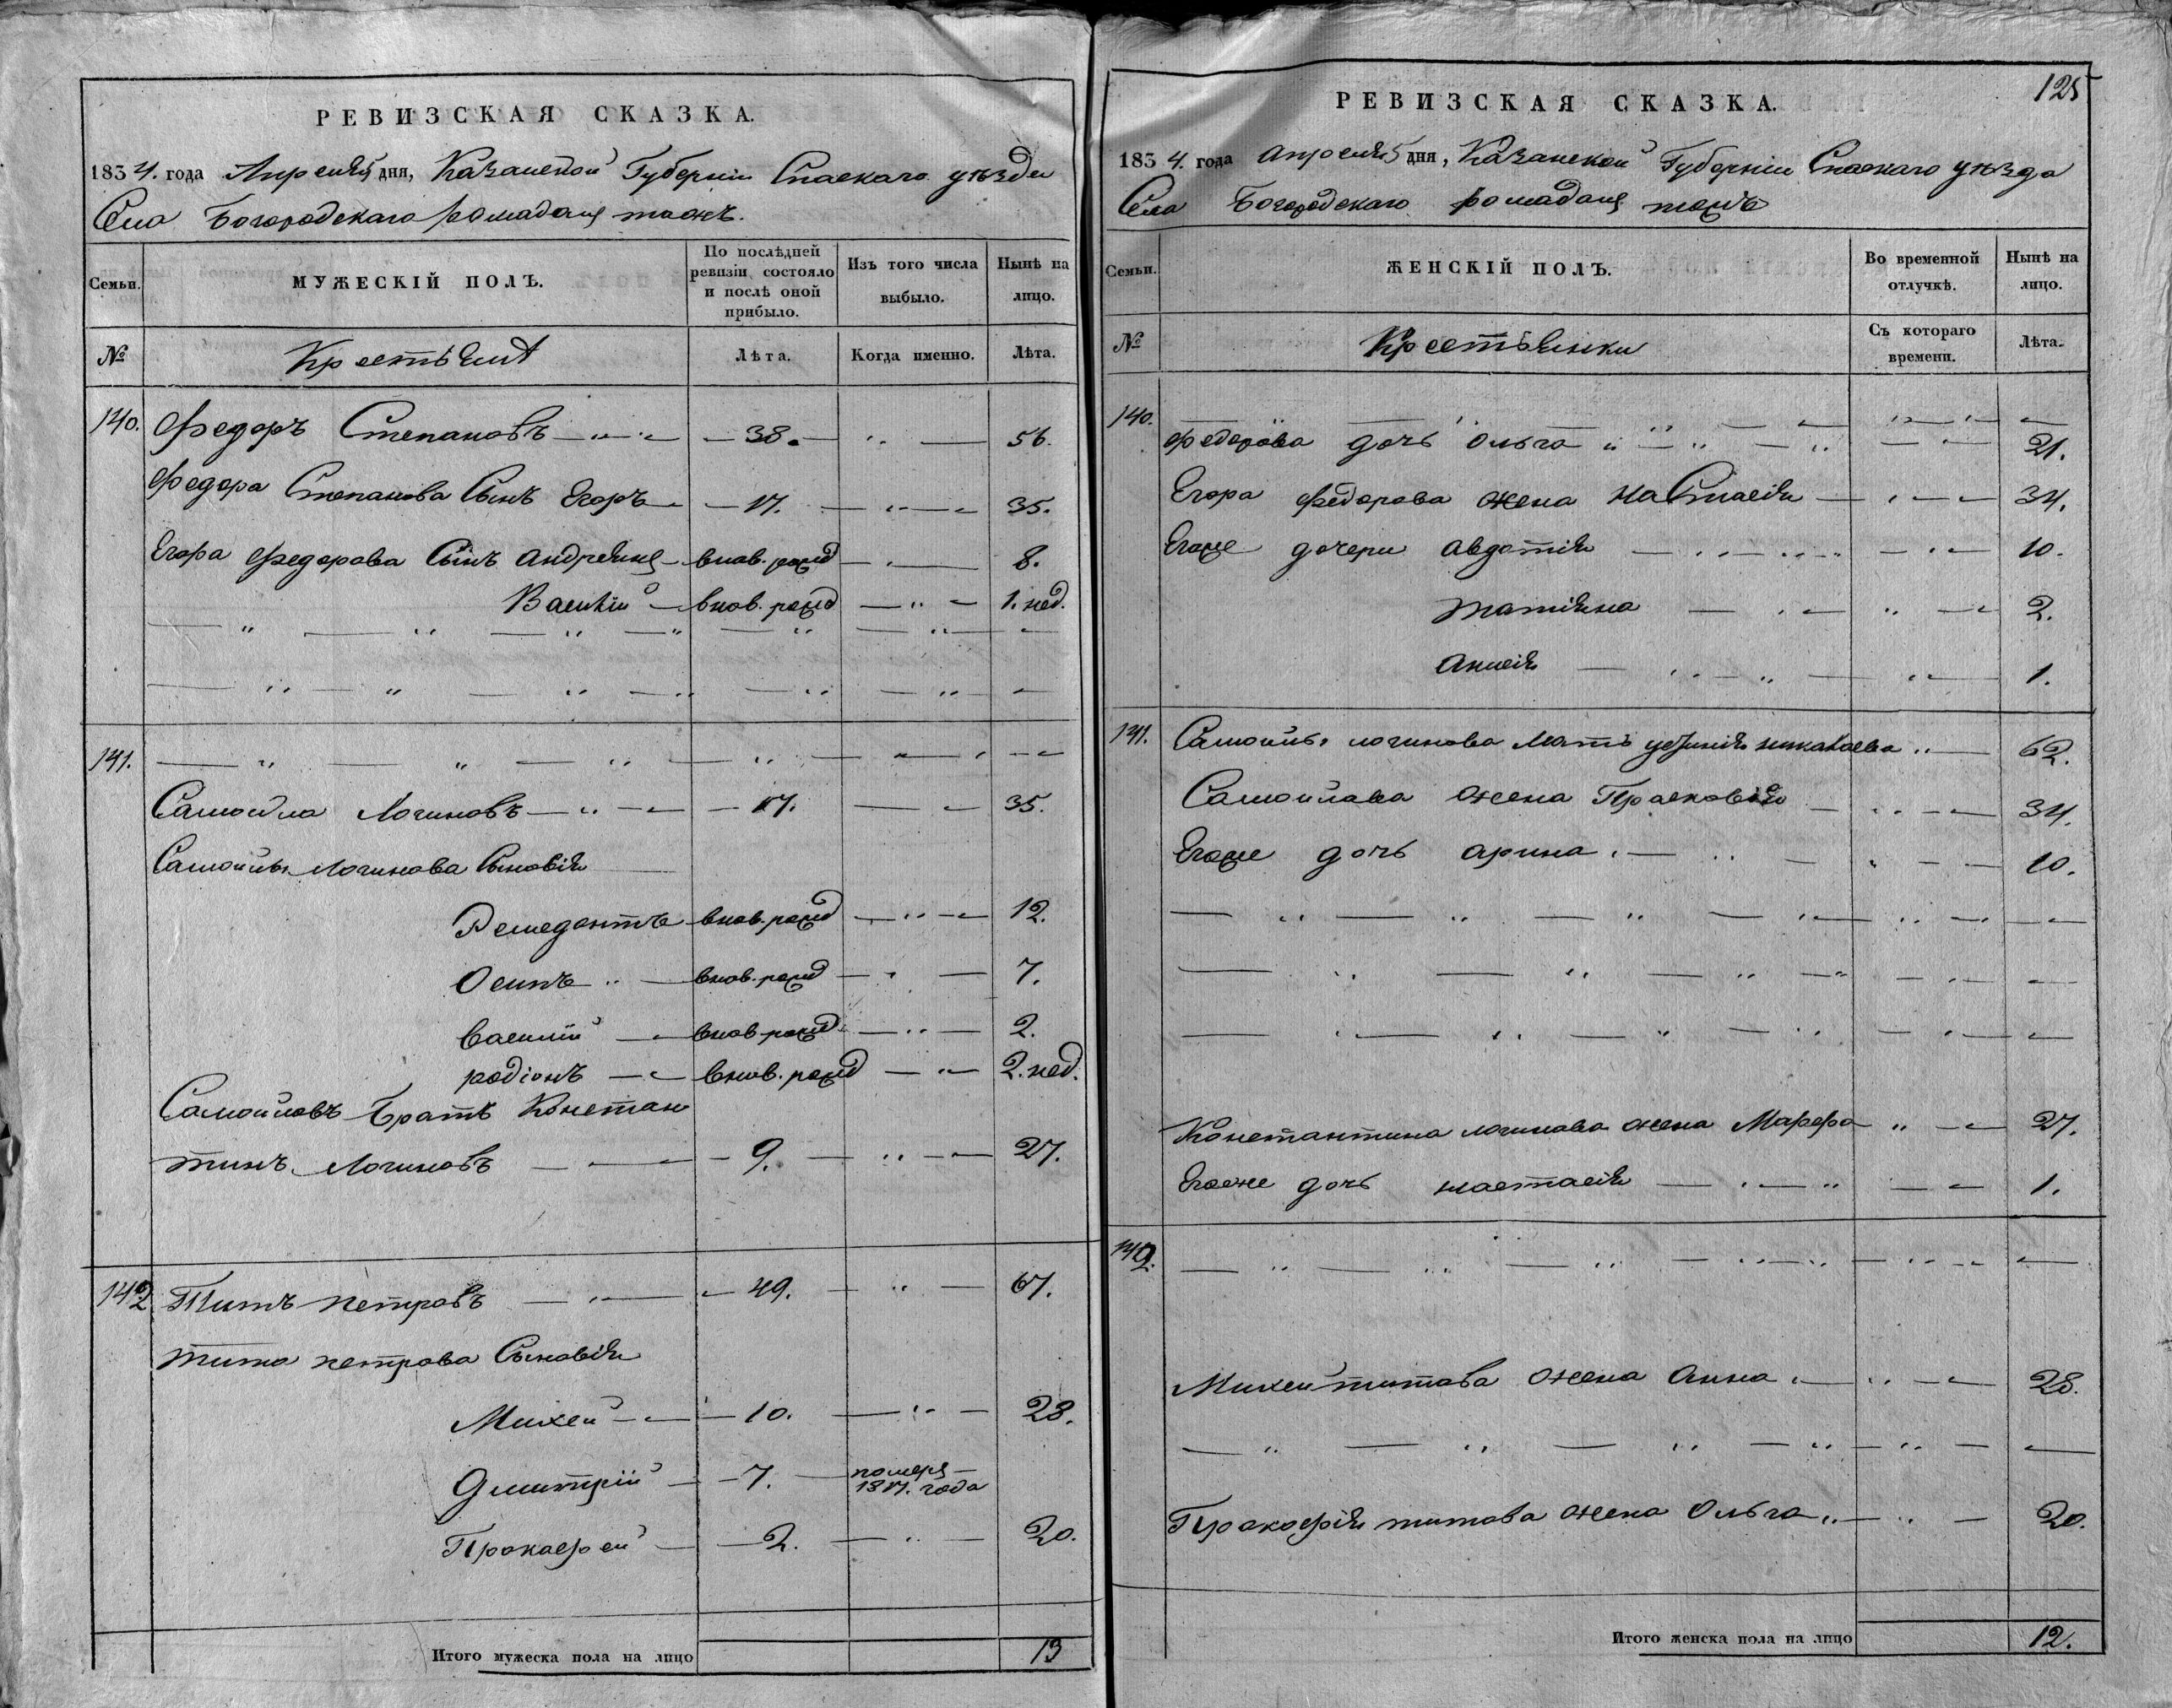 РЕВИЗСКАЯ СКАЗКА.
1834. года Апреля 5 дня, Казанской Губернии Спаскаго уѣзда
Села Богородскаго Ромадан тожъ.
Семьи.
МУЖЕСКІЙ ПОЛЪ.
По послѣдней ревизіи состояло и послѣ оной прибыло.
Изъ того числа выбыло.
Нынѣ на лицо.
№
Крестьяня
Лѣта.
Когда именно.
Лѣта.
140. Федоръ Степановъ 38. 56.
Федора Степанова Сынъ Егоръ 17. 35.
Егора Федорова Сынъ Андреянъ внов. рожд 8.
Василій внов. рожд 1. нед.
141.
Самойла Логиновъ 17. 35.
Самойлы Логинова Сыновія
внов. рожд 12.
Осипъ внов. рожд 7.
Василій внов рожд 2.
родіонъ внов. рожд 2. нед.
Самойловъ Братъ Констан
тинъ Логиновъ 9. 27.
142 Титъ петровъ 49. 67.
тита петрова Сыновія
Михей 10. 28.
Дмитрій 7. померъ
1817. года
Прокафей 2. 20.
Итого мужеска пола на лицо 13
125
РЕВИЗСКАЯ СКАЗКА.
1834. года апреля 5 дня, Казанской Губернии Спаскаго уѣзда
Села Богородскаго ромадан тожъ
Семьи.
ЖЕНСКІЙ ПОЛЪ.
Во временной отлучкѣ.
Нынѣ на лицо.
№
Крестьянки
Съ котораго времени.
Лѣта.
140.
Федорова дочь Ольга 21.
Егора Федорова жена Настасія 34.
Егоже дочери Авдотія 10.
татіяна 2.
1.
141. Самойлы логинова Мать 62.
Самойлова жена Прасковія 34.
Егоже дочь арина 10.
Константина логинова жена Марфа 27.
Егоже дочь настасія 1.
142.
Михеи титова жена Анна 28.
Пракофія титова жена Ольга 20.
Итого женска пола на лицо 12.